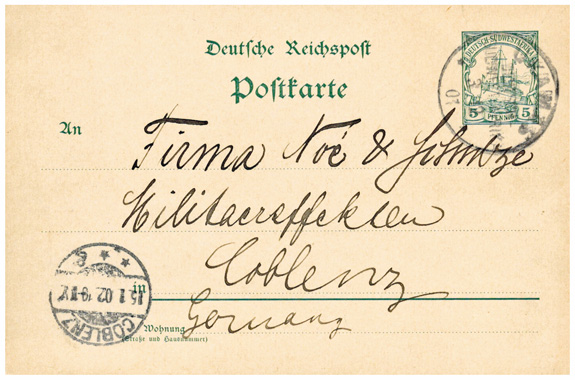 Deutsche Reichspost
Postkarte
DEUTSCH-SÜDWESTAFRIKA
5 PFENNIG 5
An
Firma Noé & Schulze
Militaereffekten
in Coblenz
Germany
Wohnung
(Straße und Hausnummer)
COBLENZ